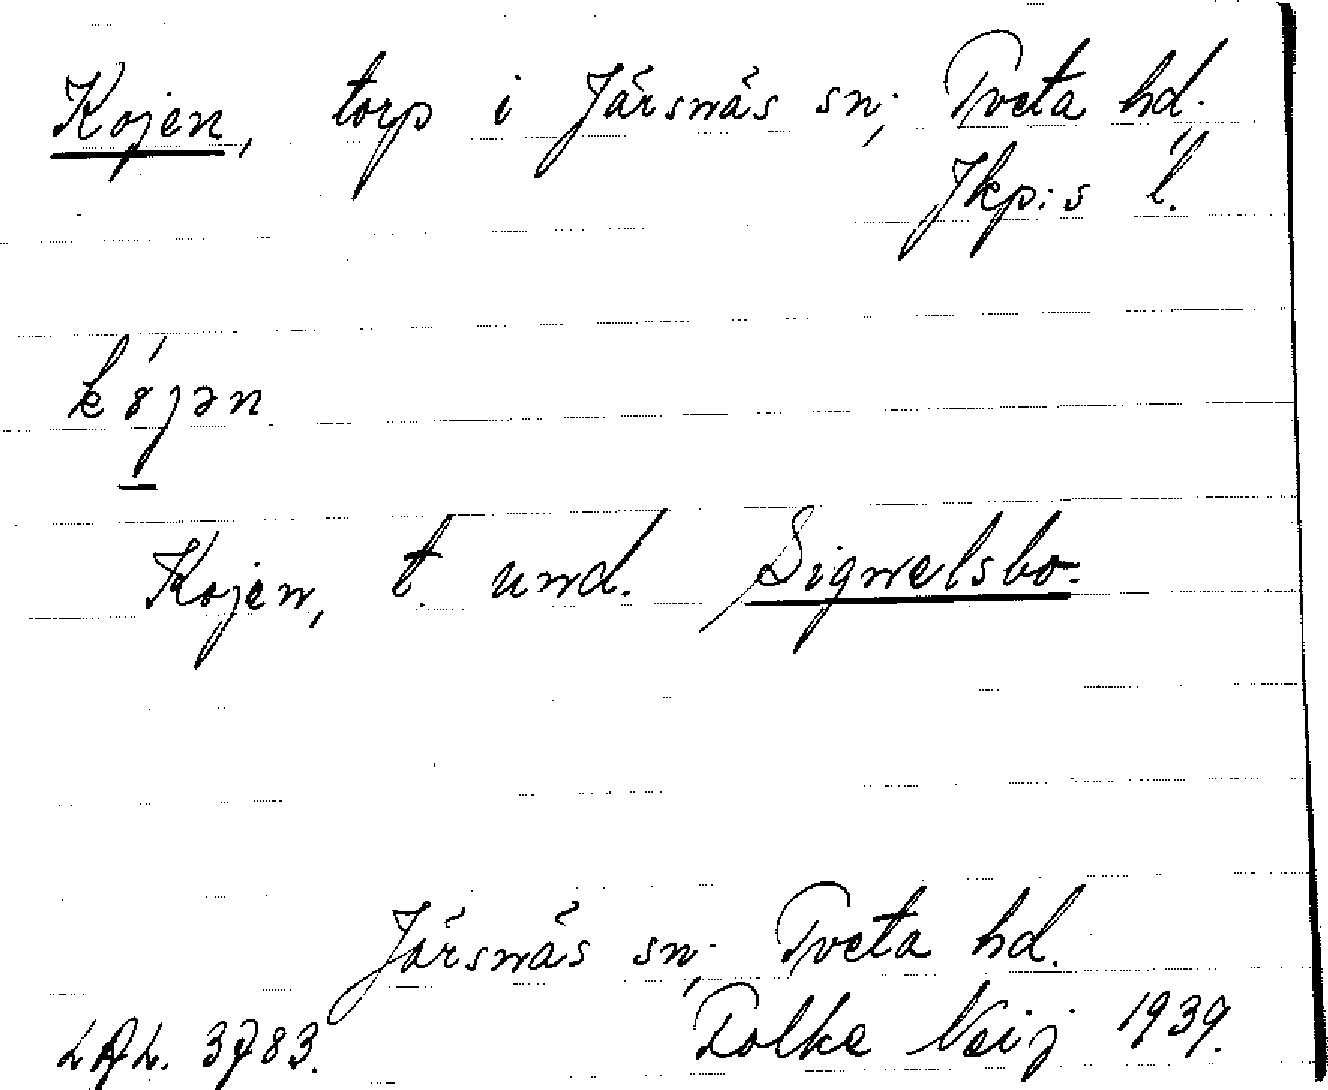 Kojen, torp i Järsnäs sn, Tveta hd.
Jkp:s l.
kójən
Kojen, t. und. Signelsbo.
Järsnäs sn, Tveta hd.
Folke Neij 1939.